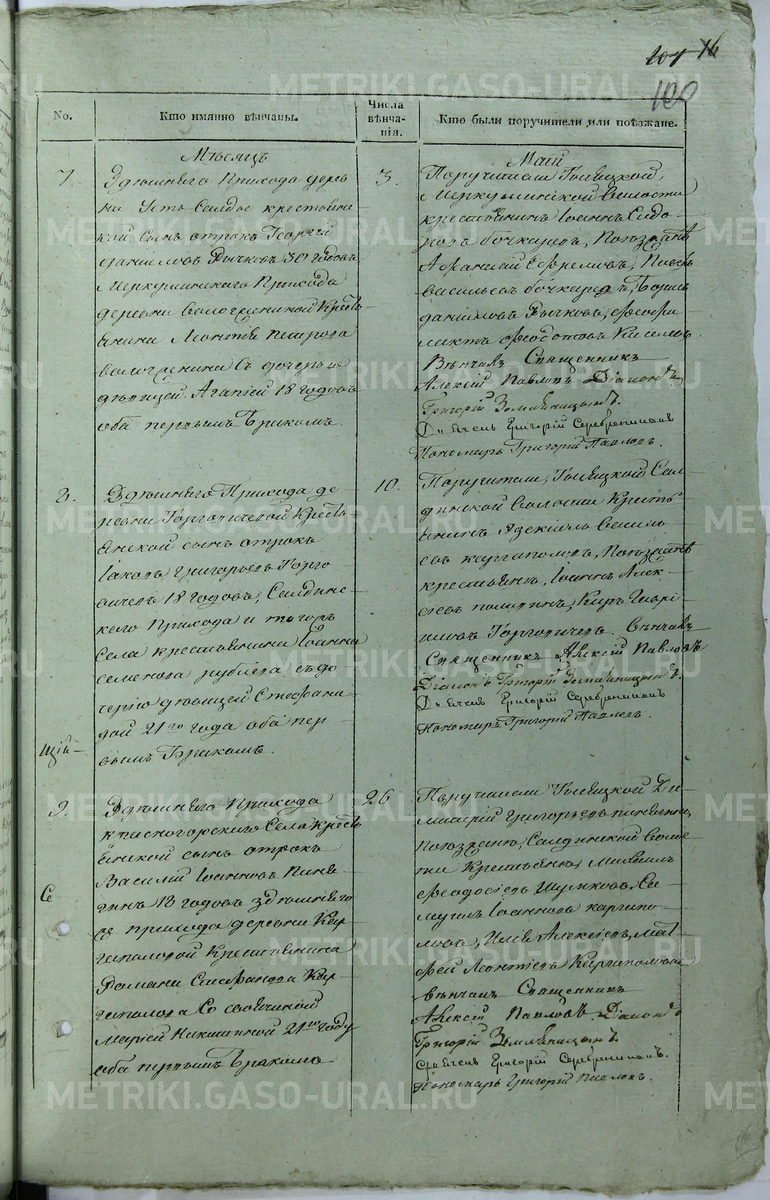 104 16
100
No.
Кто имянно вѣнчаны.
Числа вѣнча-
нія.
Кто были поручители или поѣзжане.
Мѣсяцъ
Маій
7.
Здѣшняго Прихода дерев
ни Усть Салды крестьянс
кой сынъ отрокъ Георгій
Даниловъ Рычковъ 30 годовъ
Меркушинскаго Прихода
деревни
Леонтія Петрова
съ дочерью
дѣвицей Агапіей 18 годовъ
оба первымъ бракомъ.
3.
Поручители
Меркушинской волости
крестьянинъ Іоаннъ Сидо-
ровъ Бочкаревъ, Поѣзжанѣ
Афанасій Ефремовъ, Павелъ
Васильевъ Бочкаревъ, Борисъ
Даниловъ Рычковъ, Феофи-
лактъ Федотовъ Киселевъ
Вѣнчалъ Священникъ
Алексій Павловъ Діаконъ
Григорій Земляницынъ.
Дьячекъ Григорій Серебрениковъ
Пономарь Григорій Павловъ.
8.
Здѣшняго Прихода де
ревни Кресть
янской сынъ отрокъ
Іаковъ Григорьевъ
18 годовъ, Салдинс
каго Прихода и тогожъ
Села крестьянина Іоанна
Семенова съ до
черью дѣвицей Стефани
дой 21го года оба пер
вымъ бракомъ.
10.
Поручители, Сал
динской Волости Кресть
янинъ Василь
евъ Каргаполовъ, Поѣзжанѣ
крестьянѣ, Іоаннъ Алек
сѣевъ Киръ Гаврі
иловъ Вѣнчалъ
Священникъ Алексій Павловъ
Діаконъ Григорій Земляницынъ.
Дьячекъ Григорій Серебрениковъ
Пономарь Григорій Павловъ.
щій
9.
Здѣшняго Прихода
Красногорскаго Села Крестъ
янской сынъ отрокъ
Василій Іоанновъ Пиня
гинъ 18 годовъ здѣшняго
прихода деревни Кар
гаполовой Крестьянина
Романа Стефанова Кар
гаполова со
Маріей Никитиной 21го году
оба первымъ бракомъ
Се
26
Поручители Ди
митрій Григорьевъ Пинягинъ,
Поѣзжанѣ, Салдинской Волос
ти Крестьянѣ, Михаилъ
Феодосіевъ Шумковъ, Са
муилъ Іоанновъ Каргапо
ловъ, Илія Алексѣевъ, Мат
фей Леонтіевъ Каргаполовы
вѣнчалъ Священникъ
Алексій Павловъ. Діаконъ
Григорій Земляницынъ.
Дьячекъ Григорій Серебрениковъ.
Пономарь Григорій Павловъ.
METRIKI.GASO-URAL.RU